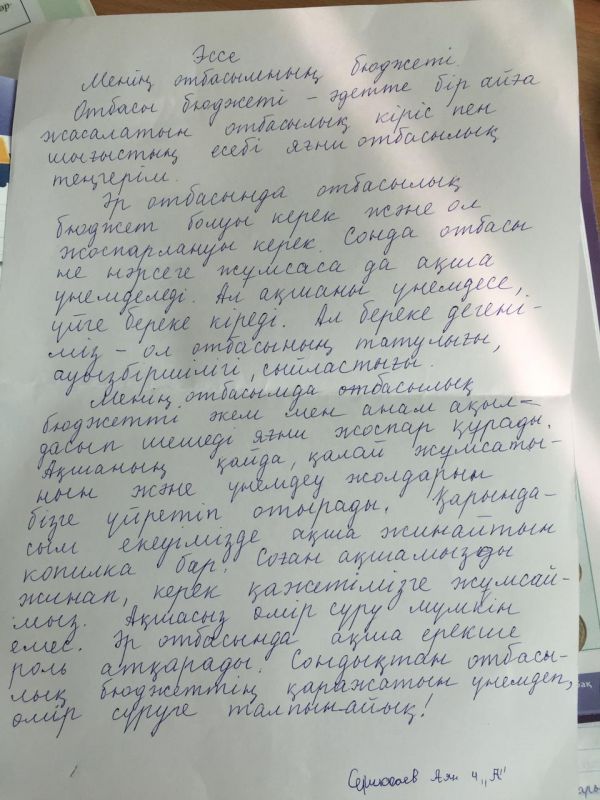 Эссе
Менің отбасымның бюджеті.
Отбасы бюджеті – әдетте бір айға
жасалатын отбасылық кіріс пен
шығыстың есебі яғни отбасылық
теңгерім.
Әр отбасында отбасылық
бюджет болуы керек және ол
жоспарлануы керек. Сонда отбасы
не нәрсеге жұмсаса да ақша
үнемделеді. Ал ақшаны үнемдесе,
үйге береке кіреді. Ал береке дегені-
міз – ол отбасының татулығы,
ауызбіршілігі, сыйластығы.
Менің отбасымда отбасылық
бюджетті әкем мен анам ақыл-
дасып шешеді яғни жоспар құрады.
Ақшаның қайда, қалай жұмсаты-
нын және үнемдеу жолдарын
бізге үйретіп отырады. Қарында-
сым екеумізде ақша жинайтын
копилка бар! Соған ақшамызды
жинап, керек қажетімізге жұмсай-
мыз. Ақшасыз өмір сүру мүмкін
емес. Әр отбасында ақша ерекше
роль атқарады! Сондықтан отбасы-
лық бюджеттің қаражатын үнемдеп,
өмір сүруге талпынайық!
Аян 4 "А"